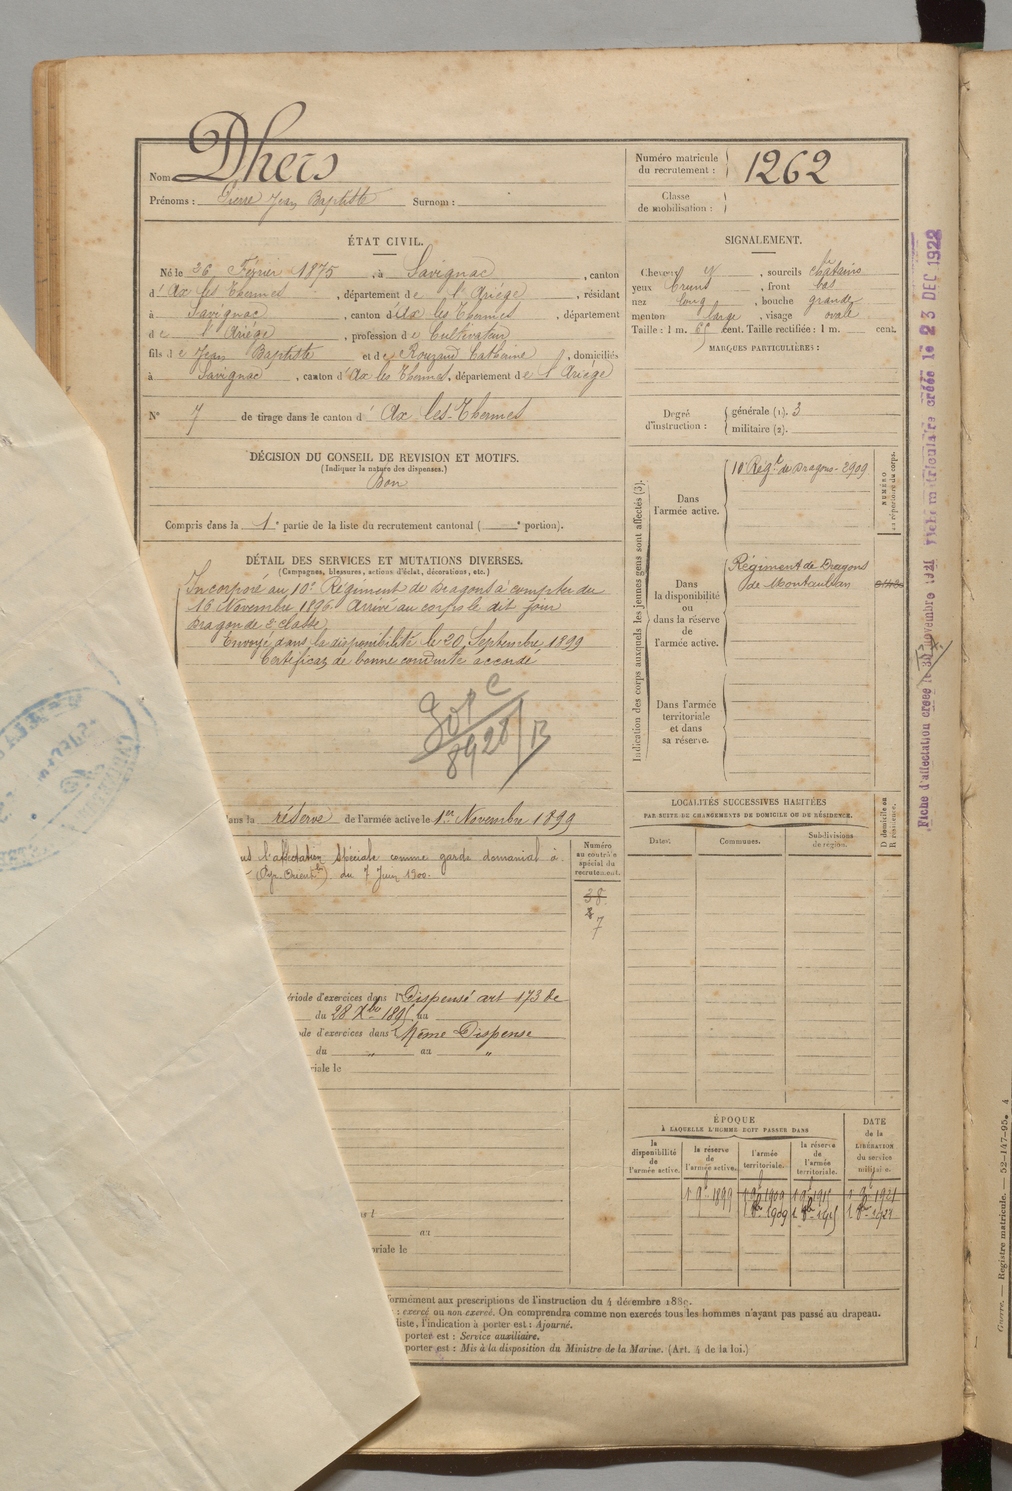 Nom Dhers
Prénoms : Pierre Jean Baptiste Surnom :
Numéro matricule du recrutement : 1262
Classe de mobilisation :
ÉTAT CIVIL.
Né le 26 Février 1875, à Savignac, canton
d' Ax les Thermes, département de l'Ariége, résidant
à Savignac, canton d'Ax les Thermes, département
de l'Ariége, profession de Cultivateur
fils de Jean Baptiste et de Rouzaud Catherine, domiciliés
à Savignac, canton d'Ax les Thermes, département de l'Ariége
N° 7 de tirage dans le canton d' Ax les-Thermes
SIGNALEMENT.
Cheveux et, sourcils châtains
yeux bruns, front bas
nez long, bouche grande
menton large, visage ovale
Taille : 1 m. 65 cent. Taille rectifiée : 1 m. cent.
MARQUES PARTICULIÈRES :
Degré d'instruction : générale (1). 3
militaire (2).
DÉCISION DU CONSEIL DE REVISION ET MOTIFS.
(Indiquer la nature des dispenses.)
Bon
Compris dans la 1e partie de la liste du recrutement cantonal ( e portion).
DÉTAIL DES SERVICES ET MUTATIONS DIVERSES.
(Campagnes, blessures, actions d'éclat, décorations, etc.)
Incorporé au 10e Régiment de Dragons à compter du
16 Novembre 1896. Arrivé au corps le dit jour
Dragon de 2e classe.
Envoyé dans la disponibilité le 20 Septembre 1899
Certificat de bonne conduite accordé
dans la réserve de l'armée active le 1er Novembre 1899
l'affectation spéciale comme garde domanial à
(Pyr. Orient.les) du 7 Juin 1900.
Numéro
au contrôle
spécial du
recrutement.
38
7
période d'exercices dans l' Dispensé art 173 de
du 28 Xbre 1895 au
ode d'exercices dans Même Dispense
du " au "
riale le
au
toriale le
Indication des corps auxquels les jeunes gens sont affectés (3).
Dans
l'armée active.
10e Régt de Dragons - 2909
NUMÉRO
au répertoire du corps.
Dans
la disponibilité
ou
dans la réserve
de
l'armée active.
Régiment de Dragons
de Montauban
Dans l'armée
territoriale
et dans
sa réserve.
LOCALITÉS SUCCESSIVES HABITÉES
PAR SUITE DE CHANGEMENTS DE DOMICILE OU DE RÉSIDENCE.
Dates.
Communes.
Subdivisions
de région.
D domicile ou
R résidence.
ÉPOQUE
À LAQUELLE L'HOMME DOIT PASSER DANS
la
disponibilité
de
l'armée active.
la réserve
de
l'armée active.
l'armée
territoriale.
la réserve
de
l'armée
territoriale.
DATE
de la
LIBÉRATION
du service
militaire.
1 9bre 1899
1 9bre 1909
1 9bre 1915
1 9bre 1921
formément aux prescriptions de l'instruction du 4 décembre 1889.
: exercé ou non exercé. On comprendra comme non exercés tous les hommes n'ayant pas passé au drapeau.
liste, l'indication à porter est : Ajourné.
porter est : Service auxiliaire.
porter est : Mis à la disposition du Ministre de la Marine. (Art. 4 de la loi.)
Fiche d'affectation créée le 30 novembre 1921
Fiche matriculaire créée le 23 DEC 1922
Guerre. — Registre matricule. — 52-147-95. 4